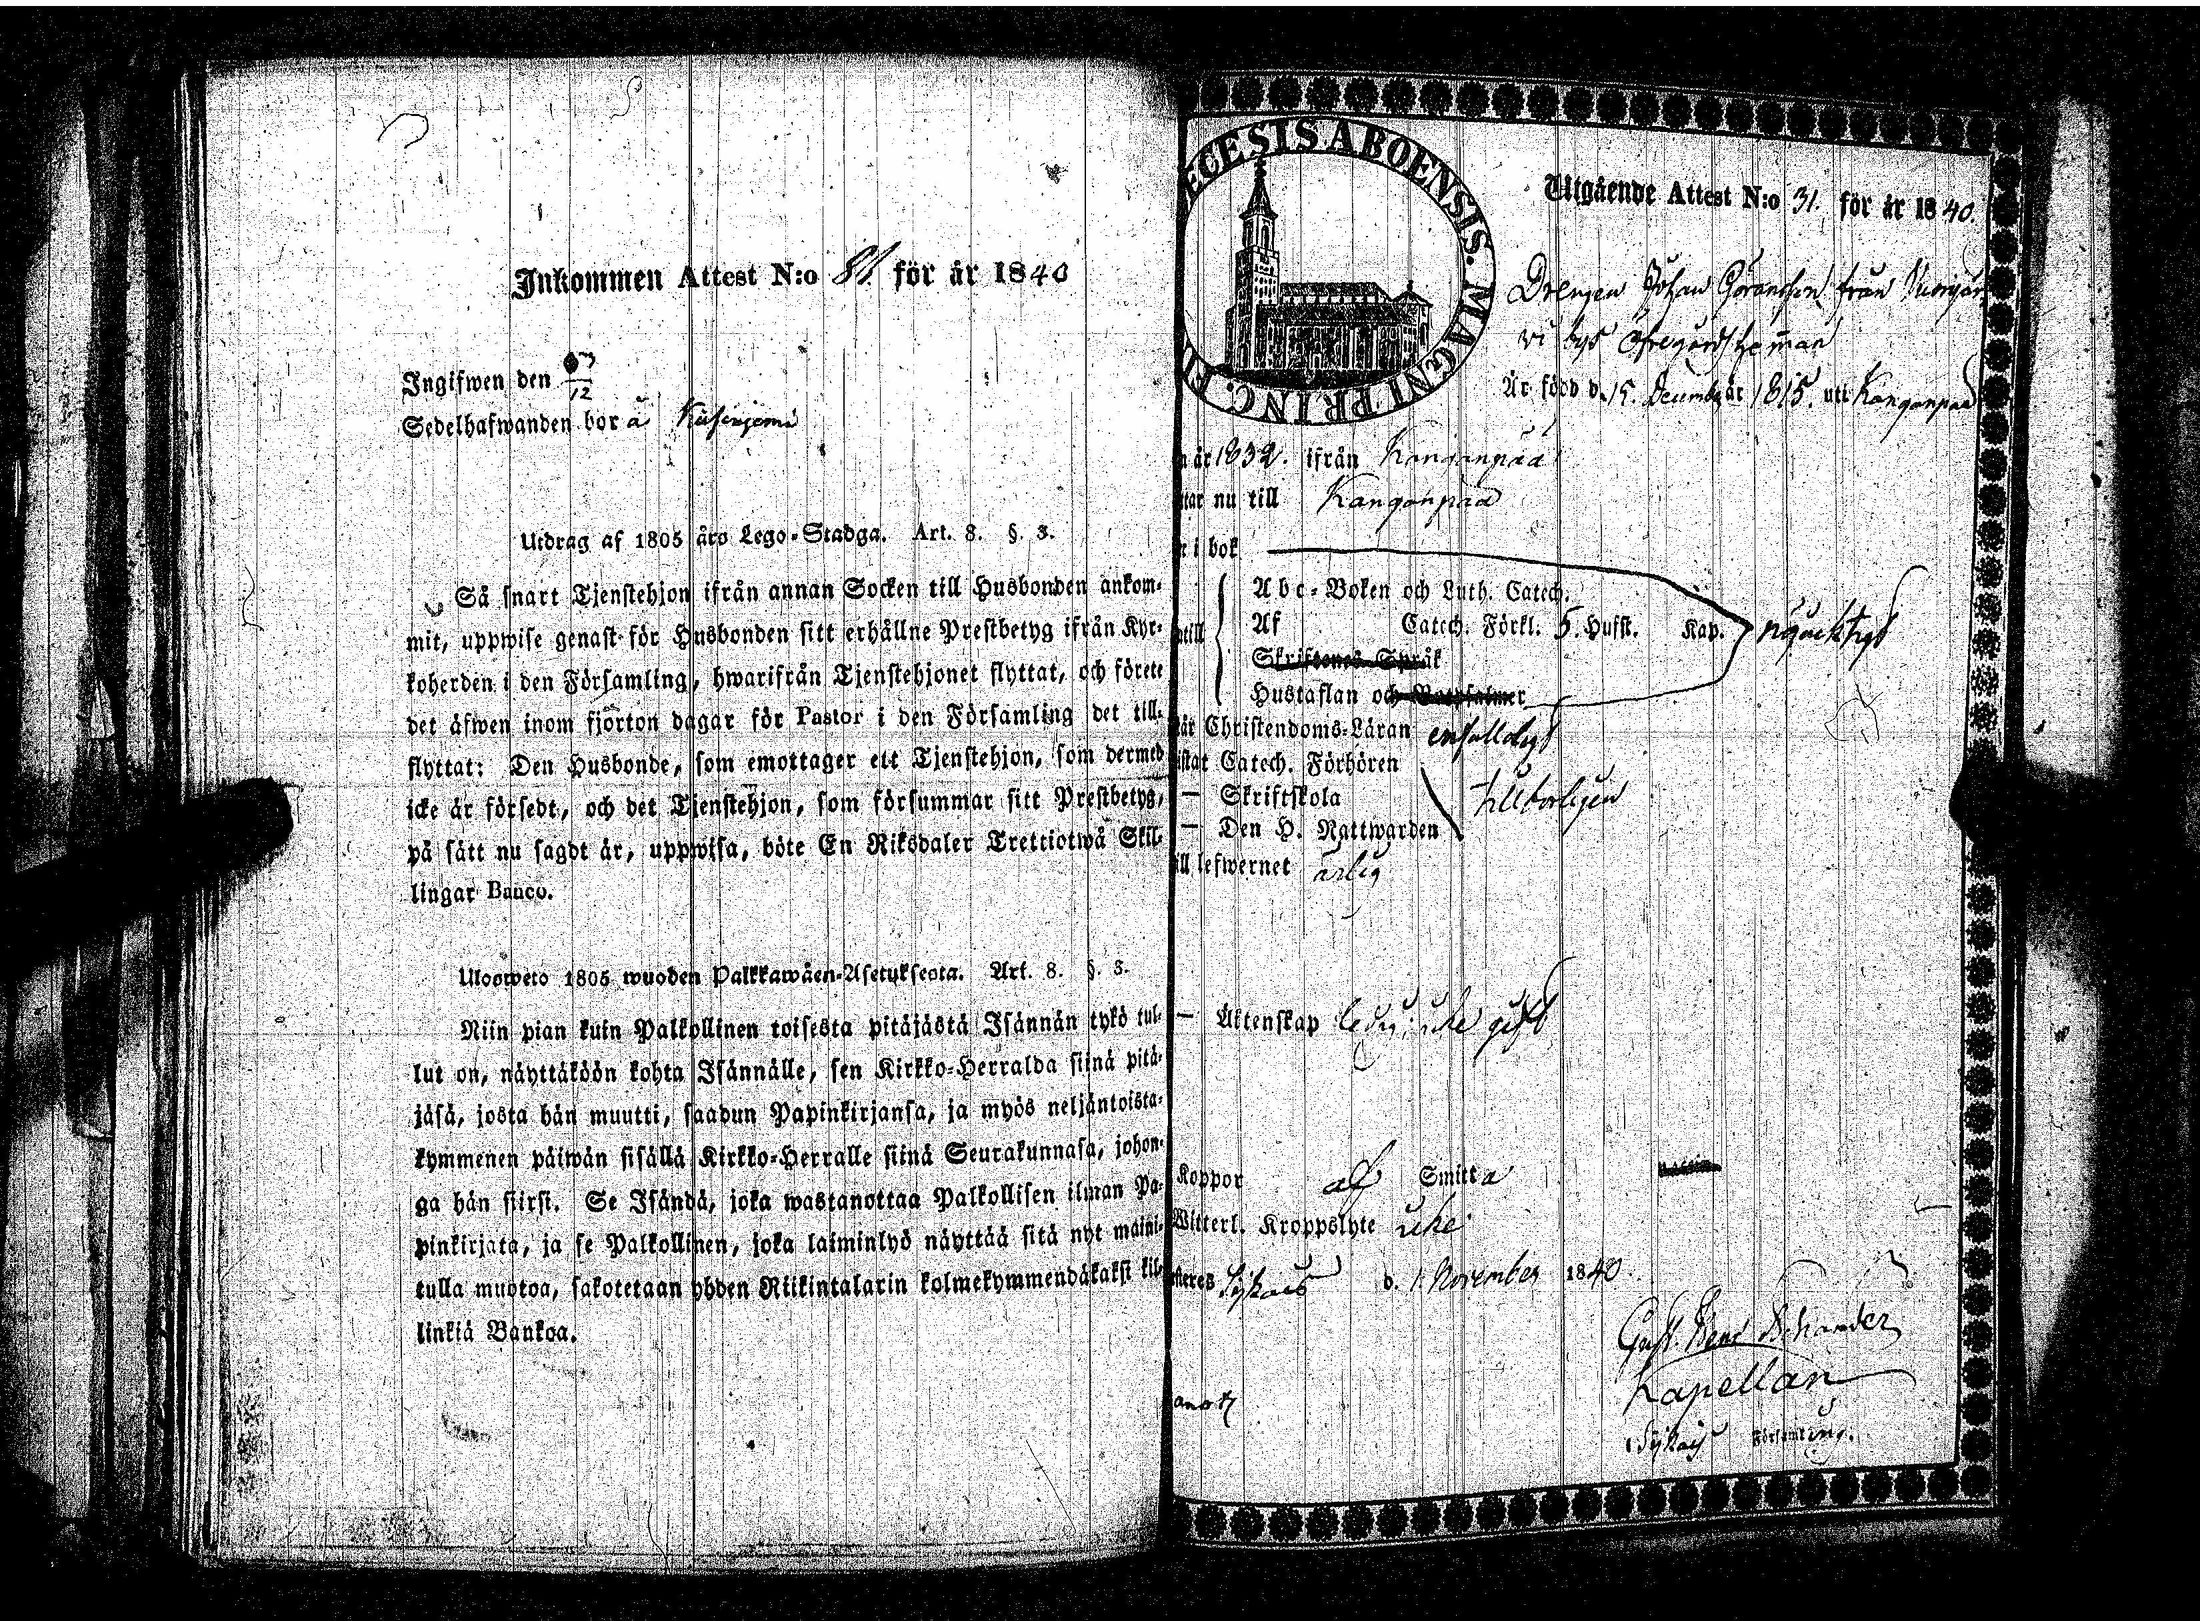 Inkommen Attest N:o 81. för år 1840
Ingifwen den
12
Sedelhafwanden bor å
Utdrag af 1805 års Lego-Stadga. Art. 8. §. 3.
Så snart Tjenstehjon ifrån annan Socken till Husbonden ankom-
mit, uppwise genast för Husbonden sitt erhållne Prestbetyg ifrån Kyr-
koherden i den Församling, hwarifrån Tjenstehjonet flyttat, och förete
det äfwen inom fjorton dagar för Pastor i den Församling det till-
flyttat: Den Husbonde, som emottager ett Tjenstehjon, som dermed
icke är försedt, och det Tjenstehjon, som försummar sitt Prestbetyg,
på sätt nu sagdt är, uppwisa, böte En Riksdaler Trettiotwå Skil-
lingar Banco.
Ulosweto 1805 wuoden Palkkawäen-Asetuksesta. Art. 8. §. 3.
Niin pian kuin Palkollinen toisesta pitäjästä Isännän tykö tul-
lut on, näyttäköön kohta Isännälle, sen Kirkko-Herralda siinä pitä-
jäsä, josta hän muutti, saadun Papinkirjansa, ja myös neljäntoista-
kymmenen päiwän sisällä Kirkko-Herralle siinä Seurakunnasa, johon-
ga hän siirsi. Se Isändä, joka wastanottaa Palkollisen ilman Pa-
pinkirjata, ja se Palkollinen, joka laiminlyö näyttää sitä nyt maini-
tulla muotoa, sakotetaan yhden Riikintalarin kolmekymmendäkaksi kil-
linkiä Bankoa.
ECESIS ABOENSIS. MAGNI PRINC. FI
Utgående Attest N:o 31. för år 1840.
Drengen Johan Göransson från
bys Öfregård heman
År född d. 15. December år 1815. uti Kangonpää
n år 1832. ifrån Kangonpää
ttar nu till Kangonpää
n i bok
Abc-Boken och Luth. Catech.
Af Catech. Förkl. 5. Hufst. Kap.
Skriftenes Språk
Hustaflan och
Christendoms-Läran enfalldigt
istat Catech. Förhören
— Skriftskola tillbörligen
— Den H. Nattwarden
ill lefwernet ärlig
— Äktenskap ledig: icke gift
Koppor af Smitta
Witterl. Kroppslyte icke
steres d. 1. November 1840.
Gust.
Kapellan
Församling.